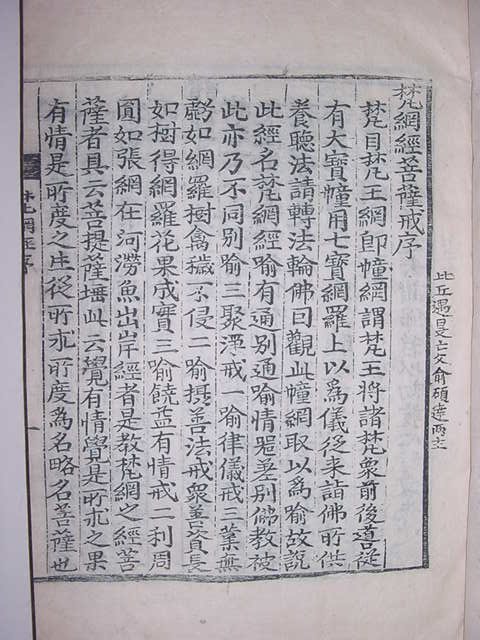 比丘遇旻亡父俞碩達兩主
梵網經菩薩戒序
梵目梵王網即幢網謂梵王將諸梵衆前後導從
有大寶幢用七寶網羅上以爲儀從来詣佛所供
養聽法請轉法輪佛曰觀此幢網取以爲喻故說
此經名梵網經喻有通別通喻情器差别佛教被
此亦乃不同别喻三聚淨戒一喻律儀戒三業無
虧如網羅樹禽穢不侵二喻攝善法戒衆善資長
如樹得網羅花果成實三喻饒益有情戒二利周
圓如張網在河澇魚出岸經者是教梵網之經菩
薩者具云菩提薩埵此云覺有情覺是所求之果
有情是所度之生從所求所度爲名略名菩薩也
梵網經序
一